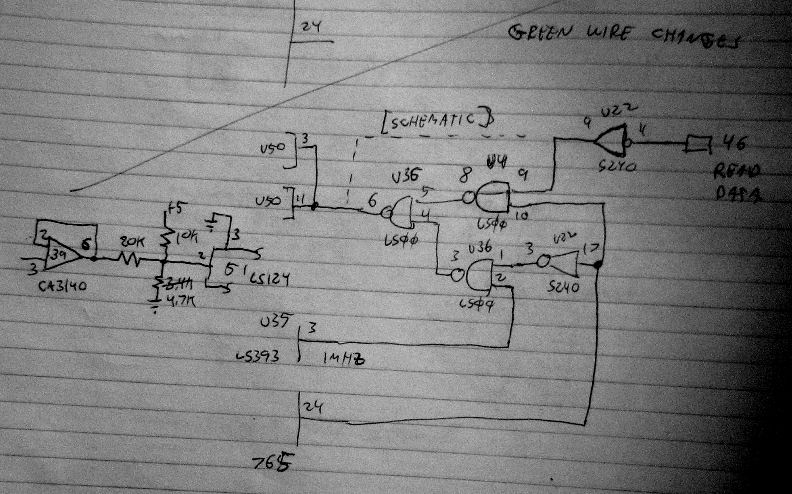 24
GREEN WIRE CHANGES
[SCHEMATIC]
U50 3
U50 11
6 U36 5
4
LS00
8 U4 9
10
LS00
9 U22 4
S240
46
READ
DATA
3 U36 1
2
LS00
3 U22 17
S240
2
3
39
6
CA3140
20K
+5
10K
4.7K
3
2
51
LS124
U35
3
LS393
1MHZ
24
765